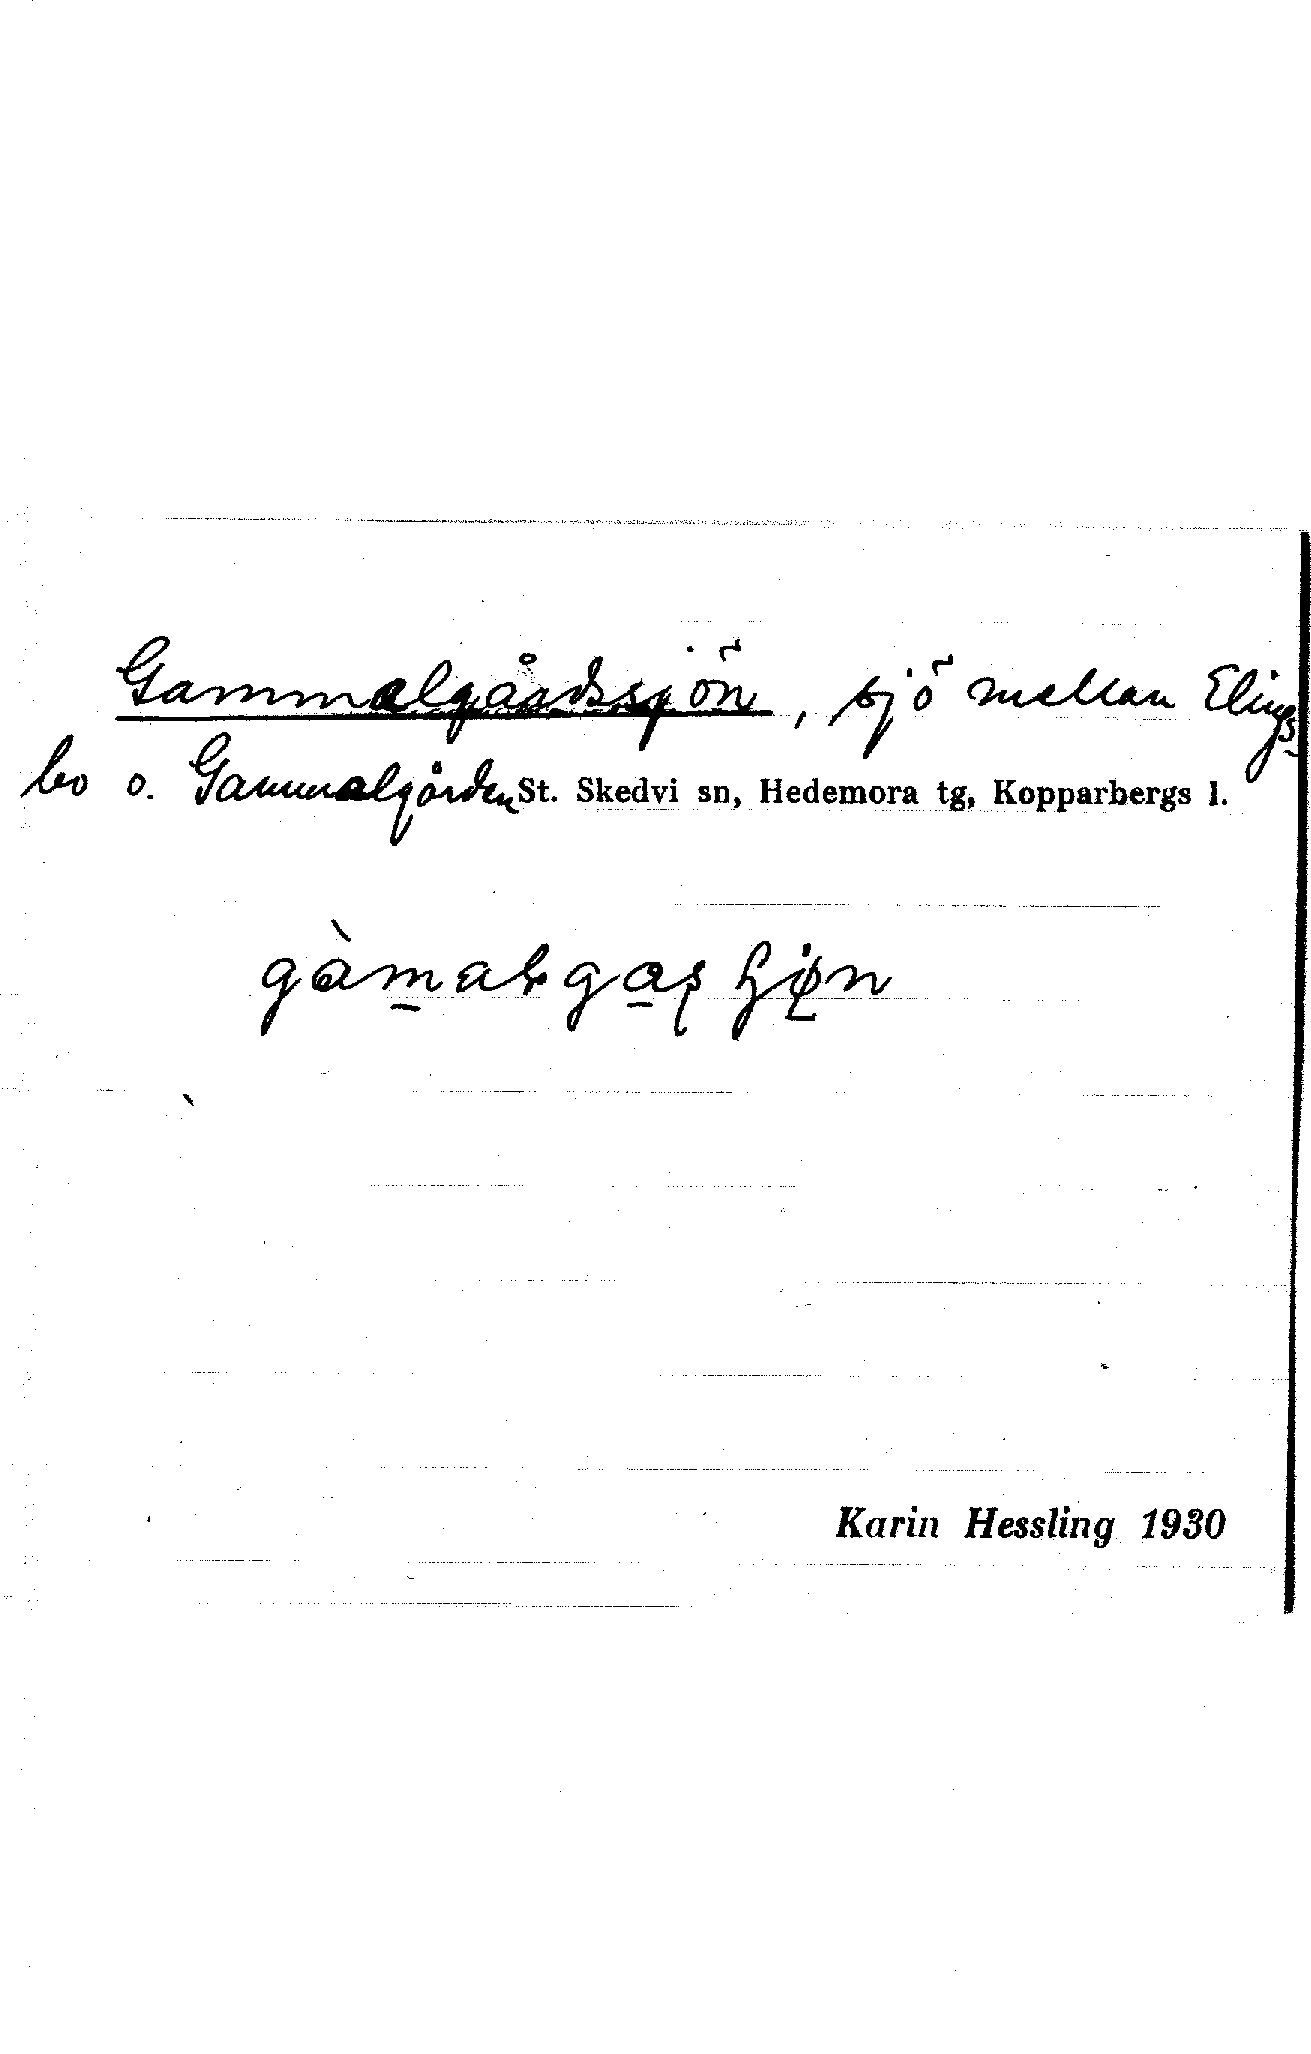 Gammalgårdssjön, sjö mellan Elings-
bo o. Gammalgården St. Skedvi sn, Hedemora tg, Kopparbergs l.
Karin Hessling 1930